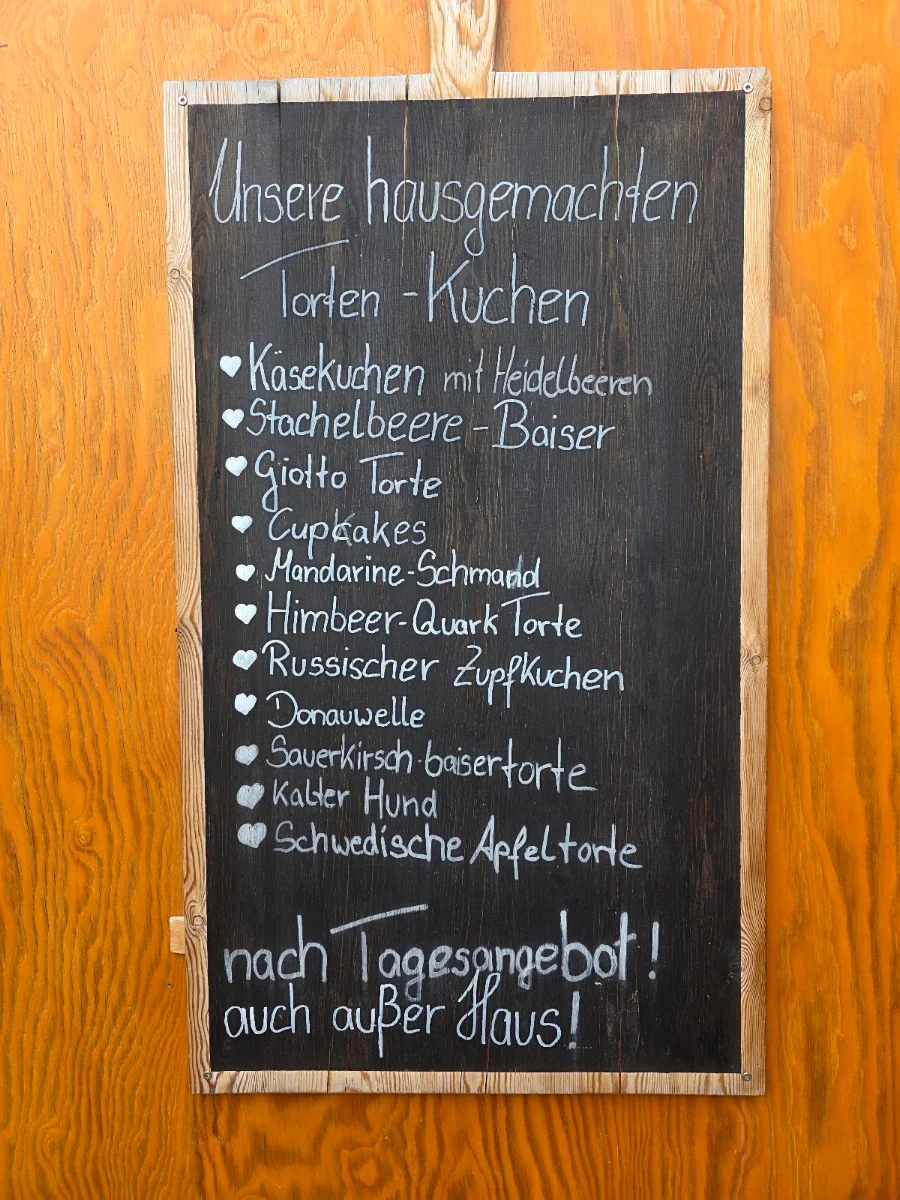 Unsere hausgemachten
Torten - Kuchen
Käsekuchen mit Heidelbeeren
Stachelbeere - Baiser
Giotto Torte
Cupkakes
Mandarine-Schmand
Himbeer-Quark Torte
Russischer Zupfkuchen
Donauwelle
Sauerkirsch-baisertorte
Kalter Hund
Schwedische Apfeltorte
nach Tagesangebot!
auch außer Haus!